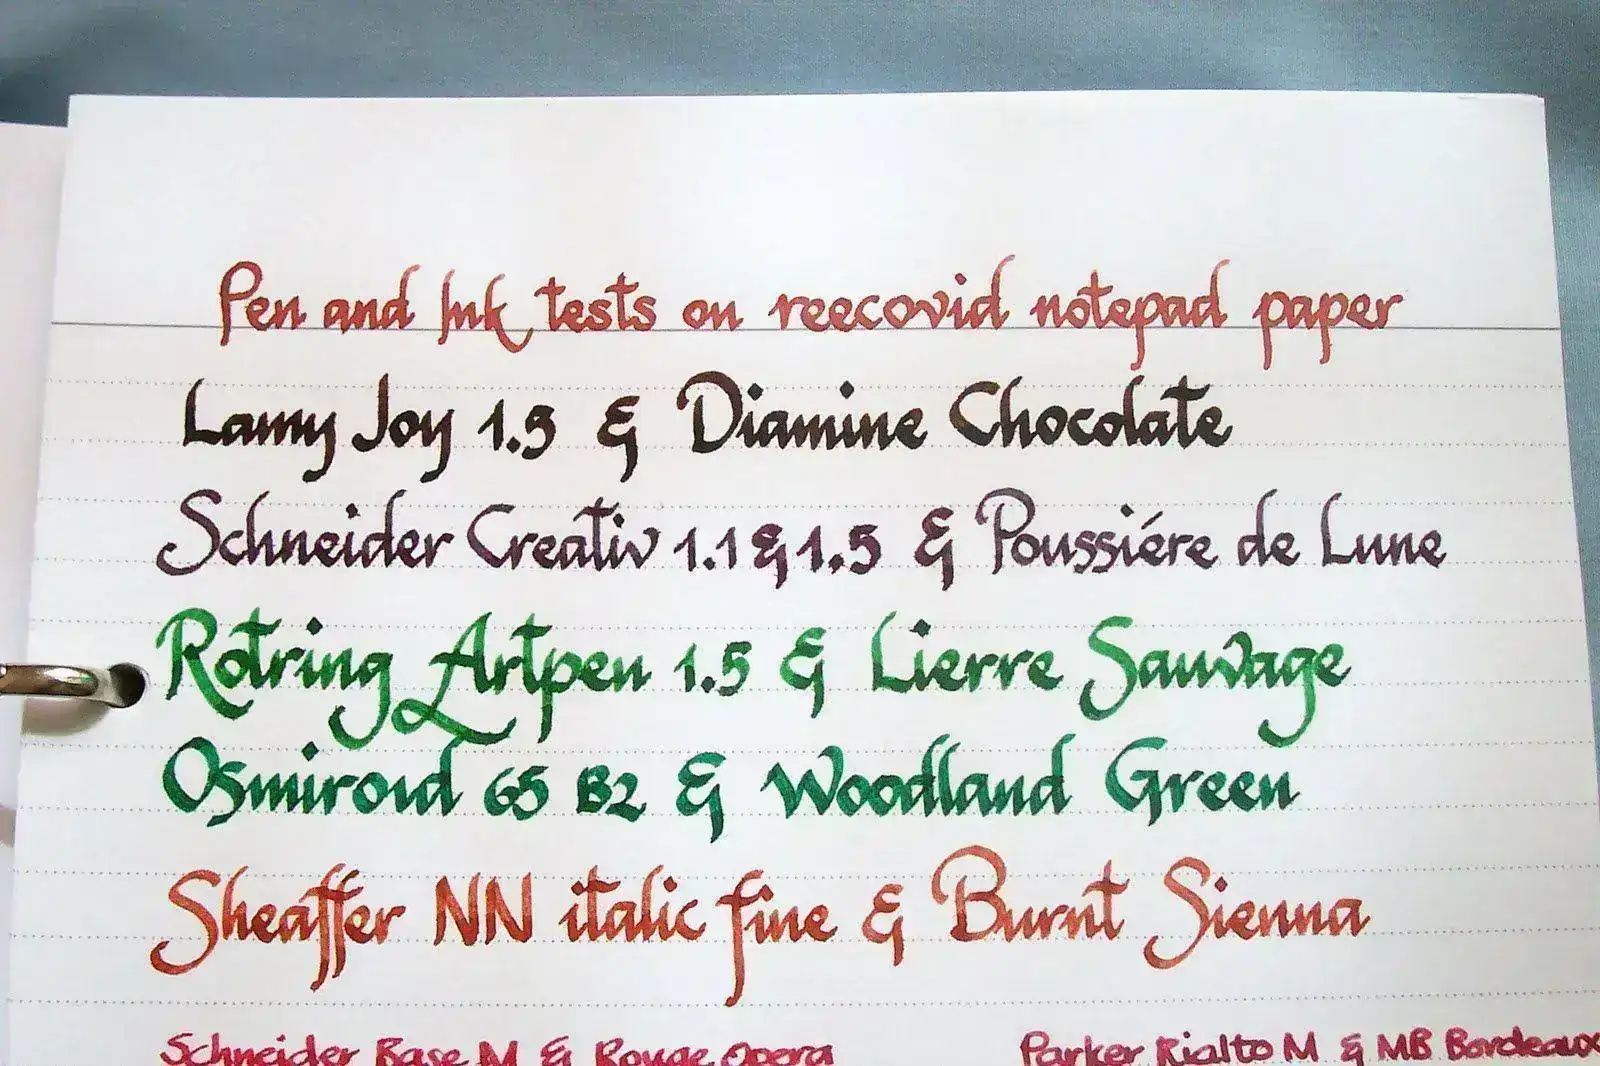 Pen and Ink tests on reecovid notepad paper
Lamy Joy 1.5 & Diamine Chocolate
Schneider Creativ 1.1 & 1.5 & Poussiére de Lune
Rotring Artpen 1.5 & Lierre Sauvage
Osmiroid 65 B2 & Woodland Green
Sheaffer NN italic fine & Burnt Sienna
Schneider Base M & Rouge Opera Parker Rialto M & MB Bordeaux